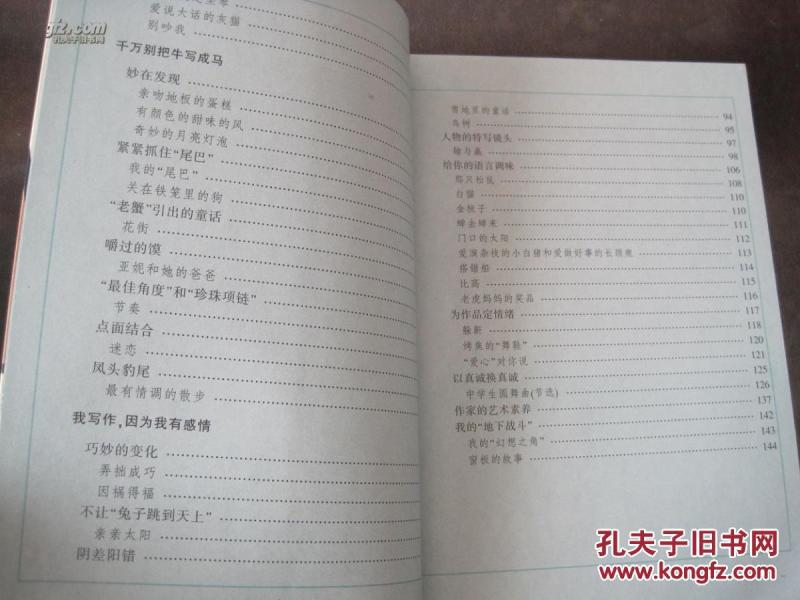 爱说大话的灰猫
别吵我
千万别把牛写成马
妙在发现
亲吻地板的蛋糕
有颜色的甜味的风
奇妙的月亮灯泡
紧紧抓住“尾巴”
我的“尾巴”
关在铁笼里的狗
“老蟹”引出的童话
花街
嚼过的馍
亚妮和她的爸爸
“最佳角度”和“珍珠项链”
节奏
点面结合
迷恋
凤头豹尾
最有情调的散步
我写作,因为我有感情
巧妙的变化
弄拙成巧
因祸得福
不让“兔子跳到天上”
亲亲太阳
阴差阳错
雪地里的童话 94
鸟树 95
人物的特写镜头 97
98
给你的语言调味 106
那只松鼠 108
白猫 110
金桃子 110
蝉去蝉来 111
门口的太阳 112
爱演杂技的小白猪和爱做好事的长颈鹿 113
搭错船 114
比高 115
老虎妈妈的奖品 116
为作品定情绪 117
躲新 118
烤焦的“舞鞋” 120
“爱心”对你说 121
以真诚换真诚 125
中学生圆舞曲(节选) 126
作家的艺术素养 137
我的“地下战斗” 142
我的“幻想之角” 143
窗板的故事 144
孔夫子旧书网
www.kongfz.com